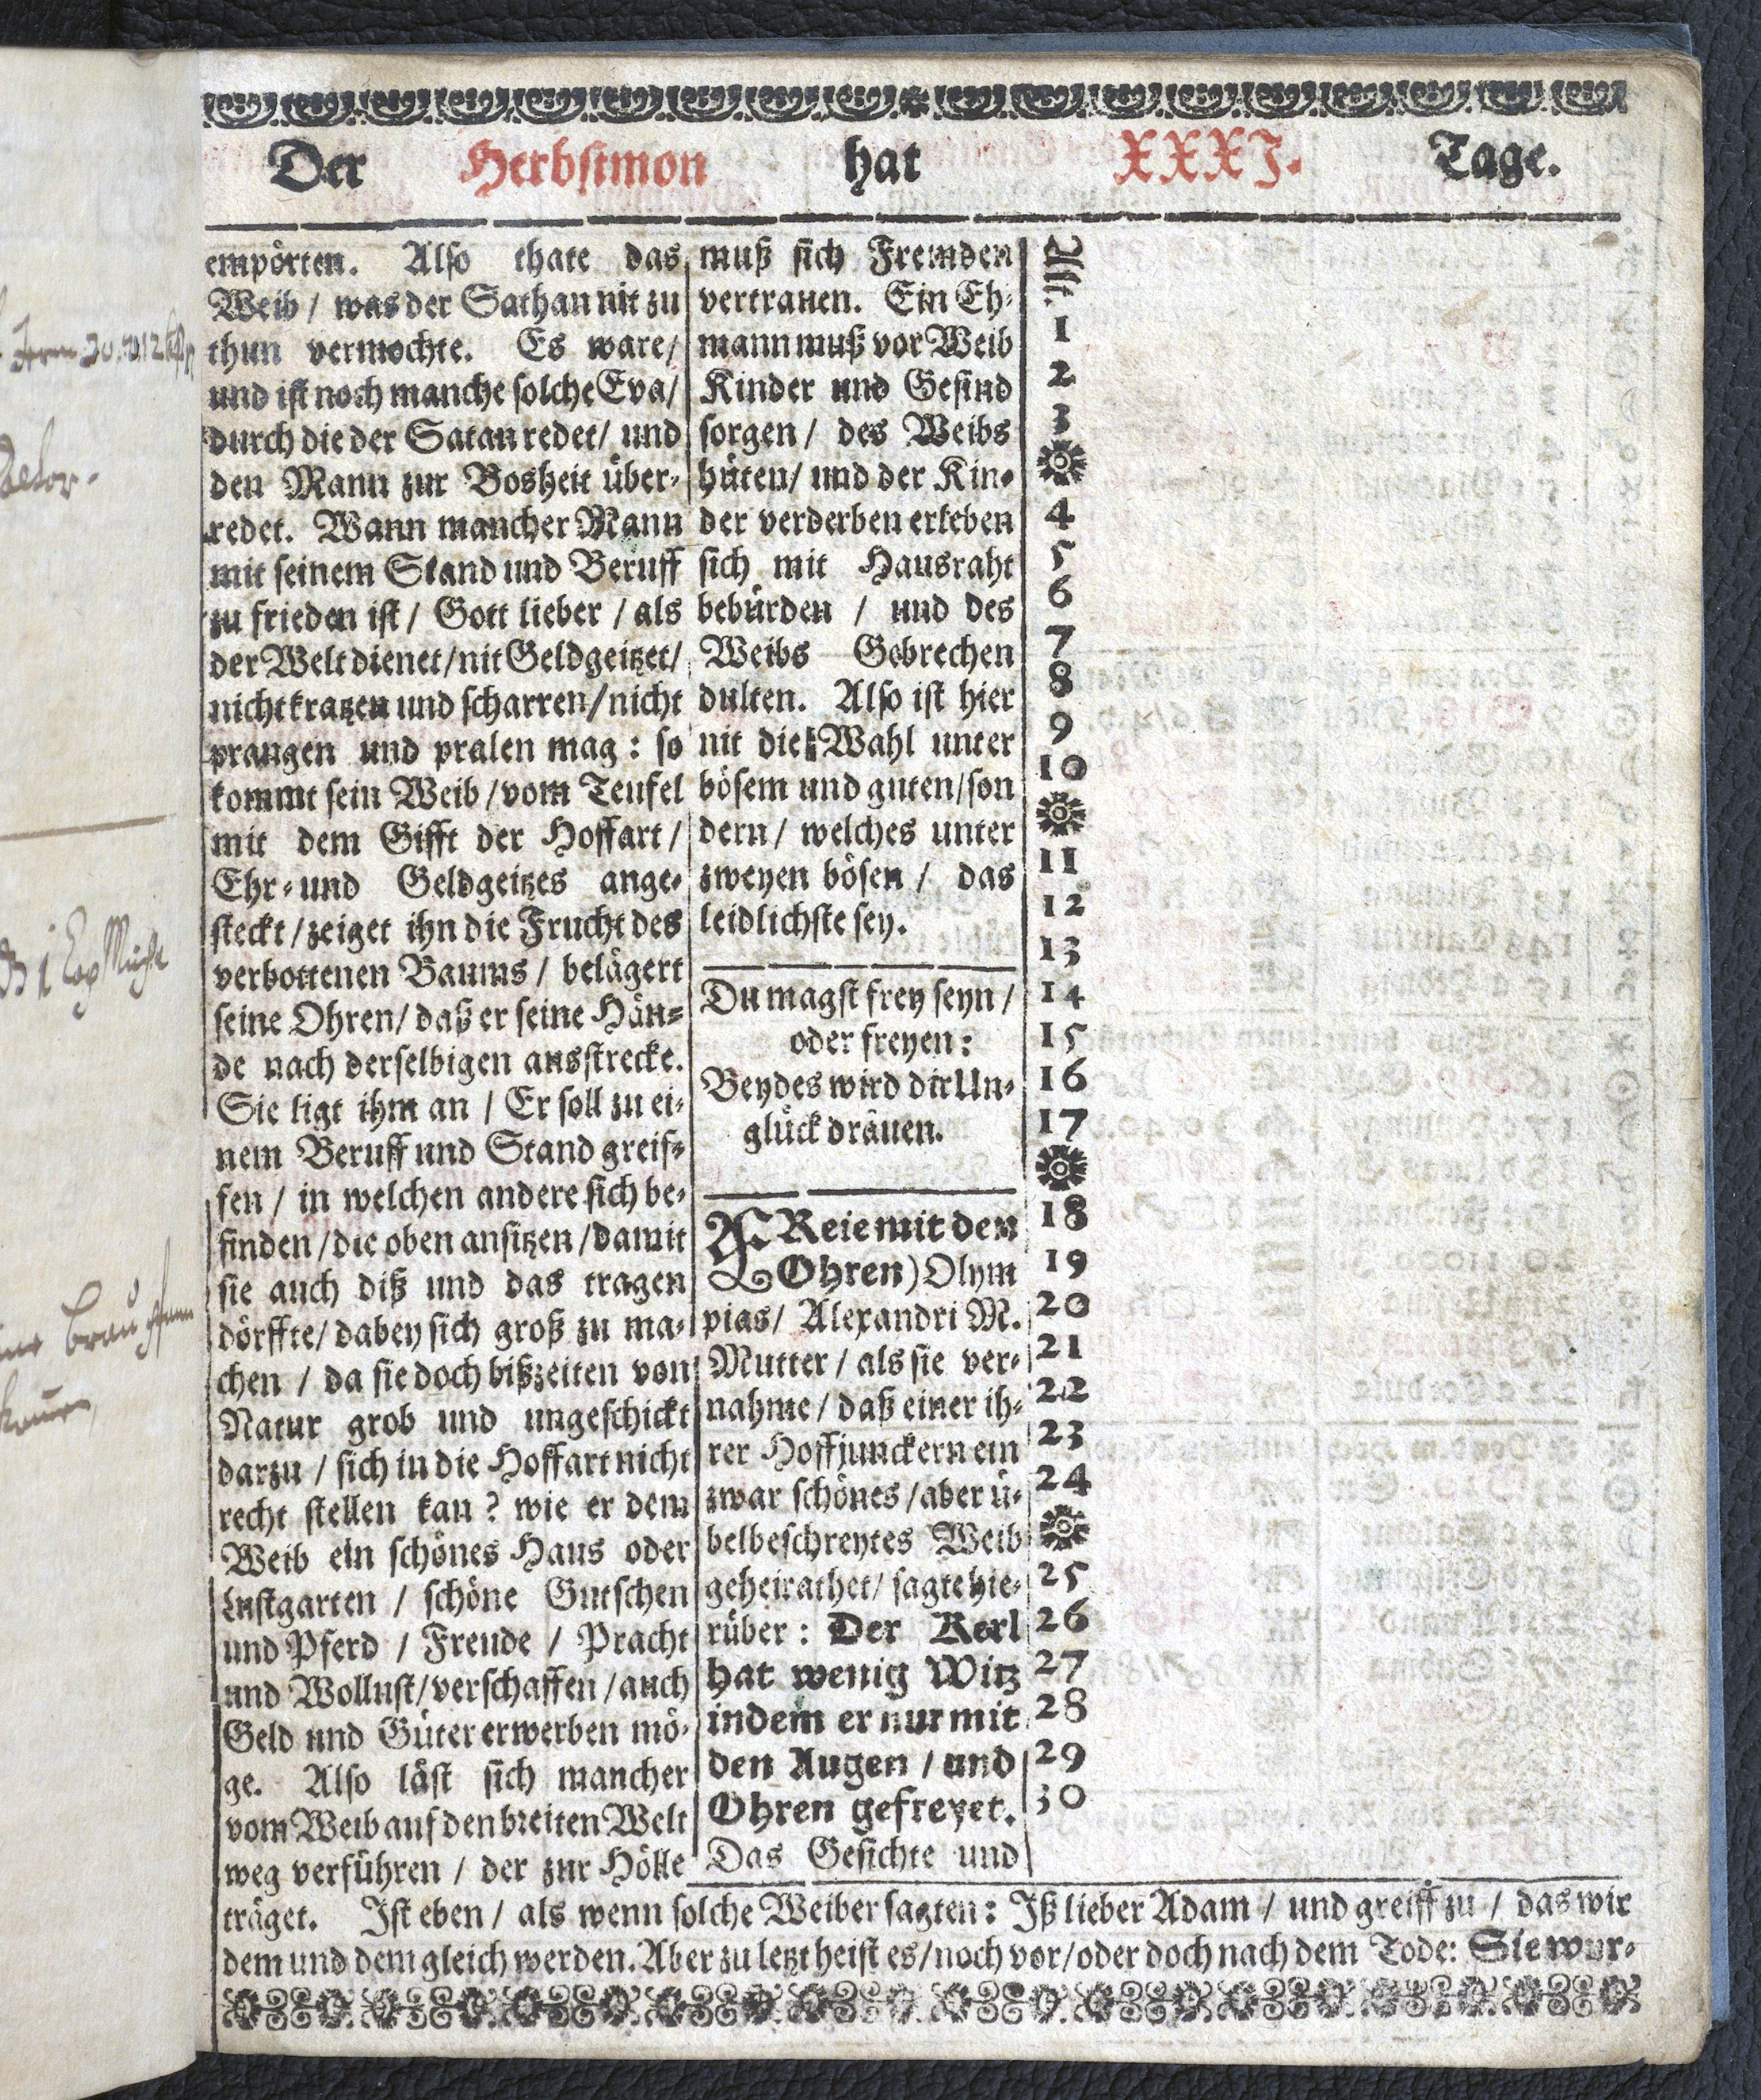 Der Herbstmon hat XXXI. Tage.
empörten. Also thate das
Weib / was der Sathan nit zu
thun vermochte. Es ware /
und ist noch manche solche Eva /
durch die der Satan redet / und
den Mann zur Bosheit über-
redet. Wann mancher Mann
mit seinem Stand und Beruff
zu frieden ist / Gott lieber / als
der Welt dienet / nit Geldgeitzet /
nicht kratzen und scharren / nicht
prangen und pralen mag : so
kommt sein Weib / vom Teufel
mit dem Gifft der Hoffart /
Ehr- und Geldgeitzes ange-
steckt / zeiget ihn die Frucht des
verbottenen Baums / belägert
seine Ohren / daß er seine Hän-
de nach derselbigen ausstrecke.
Sie ligt ihm an / Er soll zu ei-
nem Beruff und Stand greif-
fen / in welchen andere sich be-
finden / die oben ansitzen / damit
sie auch diß und das tragen
dörffte / dabey sich groß zu ma-
chen / da sie doch bißzeiten von
Natur grob und ungeschickt
darzu / sich in die Hoffart nicht
recht stellen kan ? wie er dem
Weib ein schönes Haus oder
Lustgarten / schöne Gutschen
und Pferd / Freude / Pracht
und Wollust / verschaffen / auch
Geld und Güter erwerben mö-
ge. Also läst sich mancher
vom Weib auf den breiten Welt
weg verführen / der zur Hölle
muß sich Fremden
vertrauen. Ein Eh-
mann muß vor Weib
Kinder und Gesind
sorgen / des Weibs
hüten / und der Kin-
der verderben erleben
sich mit Hausraht
bebürden / und des
Weibs Gebrechen
dulten. Also ist hier
nit die Wahl unter
bösem und guten / son
dern / welches unter
zweyen bösen / das
leidlichste sey.
Du magst frey seyn /
oder freyen :
Beydes wird dir Un-
glück dräuen.
Reie mit den
Ohren) Olym
pias / Alexandri M.
Mutter / als sie ver-
nahme / daß einer ih-
rer Hoffjunckern ein
zwar schönes / aber ü-
belbeschreytes Weib
geheirathet / sagte hie-
rüber : Der Kerl
hat wenig Witz
indem er nur mit
den Augen / und
Ohren gefreyet.
Das Gesichte und
1
2
3
4
5
6
7
8
9
10
11
12
13
14
15
16
17
18
19
20
21
22
23
24
25
26
27
28
29
30
träget. Ist eben / als wenn solche Weiber sagten : Iß lieber Adam / und greiff zu / das wir
dem und dem gleich werden. Aber zu letzt heist es / noch vor / oder doch nach dem Tode : Sie wur-